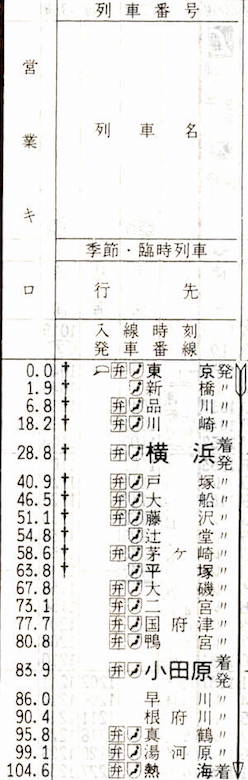 列車番号
営業キロ
列車名
季節・臨時列車
行先
入線時刻
発車番線
0.0 弁 東京発
1.9 新橋〃
6.8 弁 品川〃
18.2 弁 川崎〃
28.8 弁 横浜着発
40.9 弁 戸塚〃
46.5 弁 大船〃
51.1 弁 藤沢〃
54.8 辻堂〃
58.6 弁 茅ケ崎〃
63.8 平塚〃
67.8 弁 大磯〃
73.1 弁 二宮〃
77.7 弁 国府津〃
80.8 弁 鴨宮〃
83.9 弁 小田原着発
86.0 早川〃
90.4 根府川〃
95.8 弁 真鶴〃
99.1 弁 湯河原〃
104.6 弁 熱海着